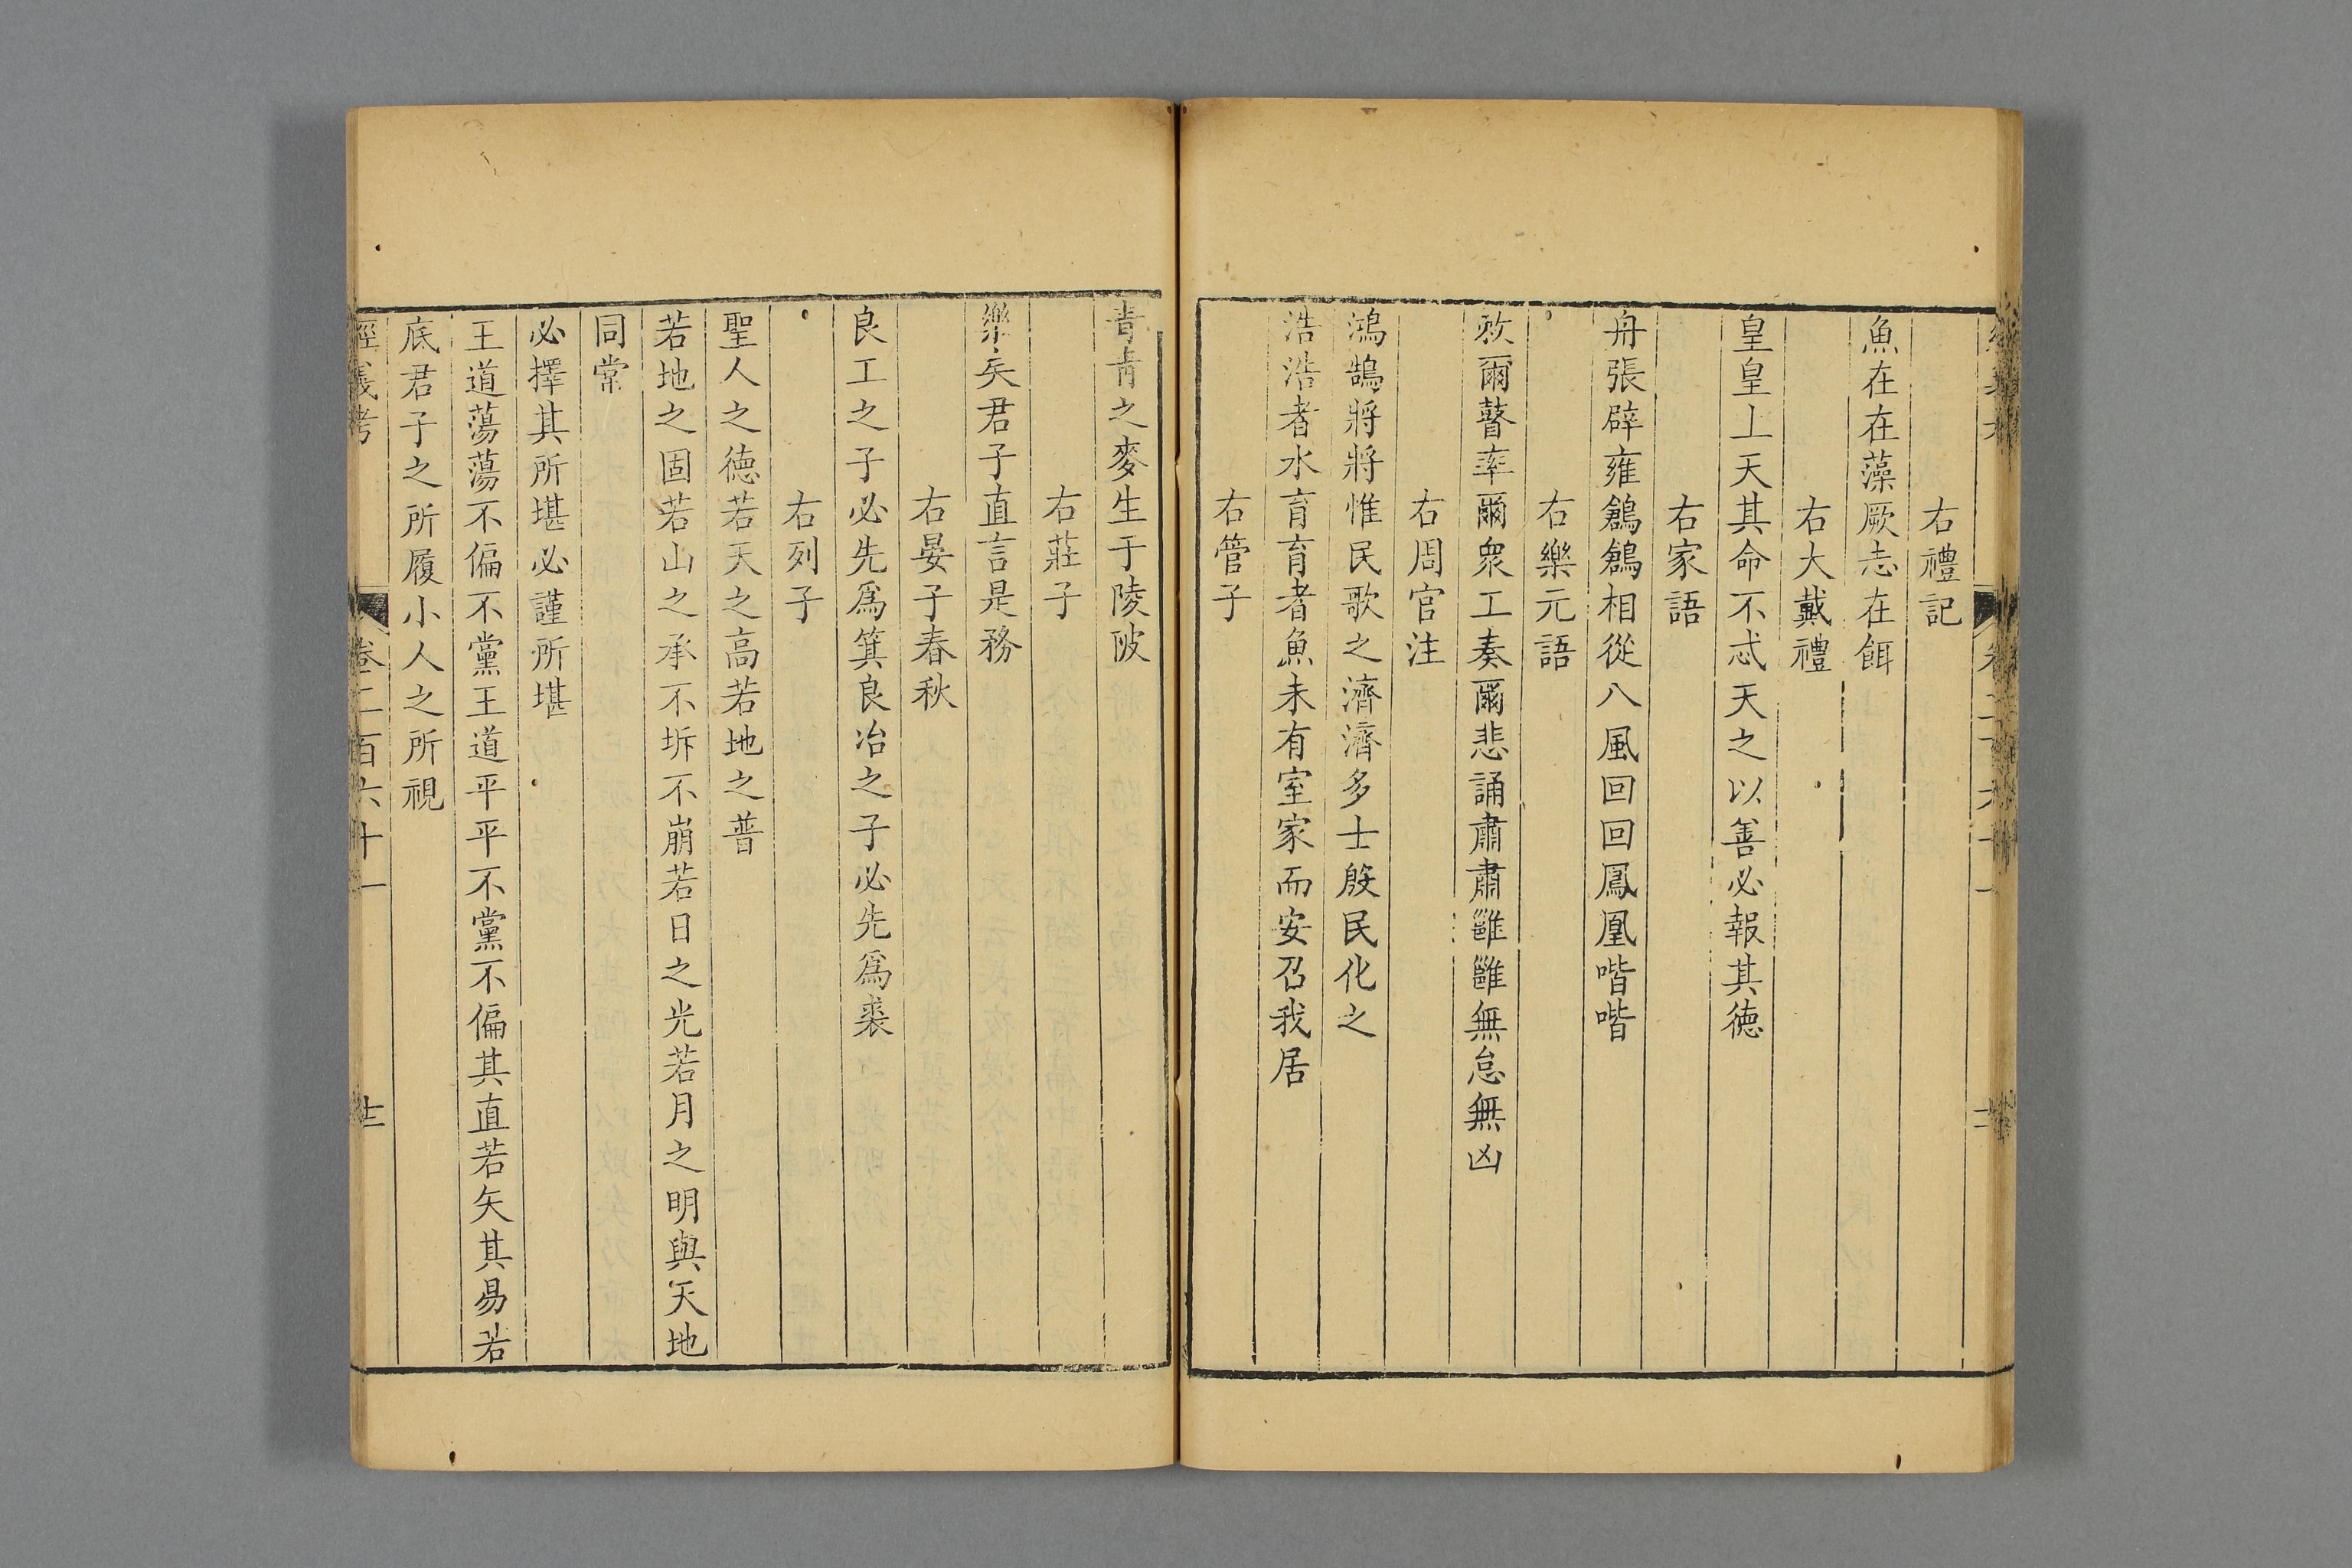 右禮記
魚在在藻厥志在餌
右大戴禮
皇皇上天其命不忒天之以善必報其德
右家語
舟張辟雍鶬鶬相從八風回回鳳凰喈喈
右樂元語
敕爾瞽率爾衆工奏爾悲誦肅肅雝雝無怠無凶
右周官注
鴻鵠將將惟民歌之濟濟多士殷民化之
浩浩者水育育者魚未有室家而安召我居
右管子
青青之麥生于陵陂
右莊子
樂矣君子直言是務
右晏子春秋
良工之子必先爲箕良冶之子必先爲裘
右列子
聖人之德若天之高若地之普
若地之固若山之承不坼不崩若日之光若月之明與天地
同常
必擇其所堪必謹所堪
王道蕩蕩不偏不黨王道平平不黨不偏其直若矢其易若
底君子之所履小人之所視
經義考
卷二百六十一